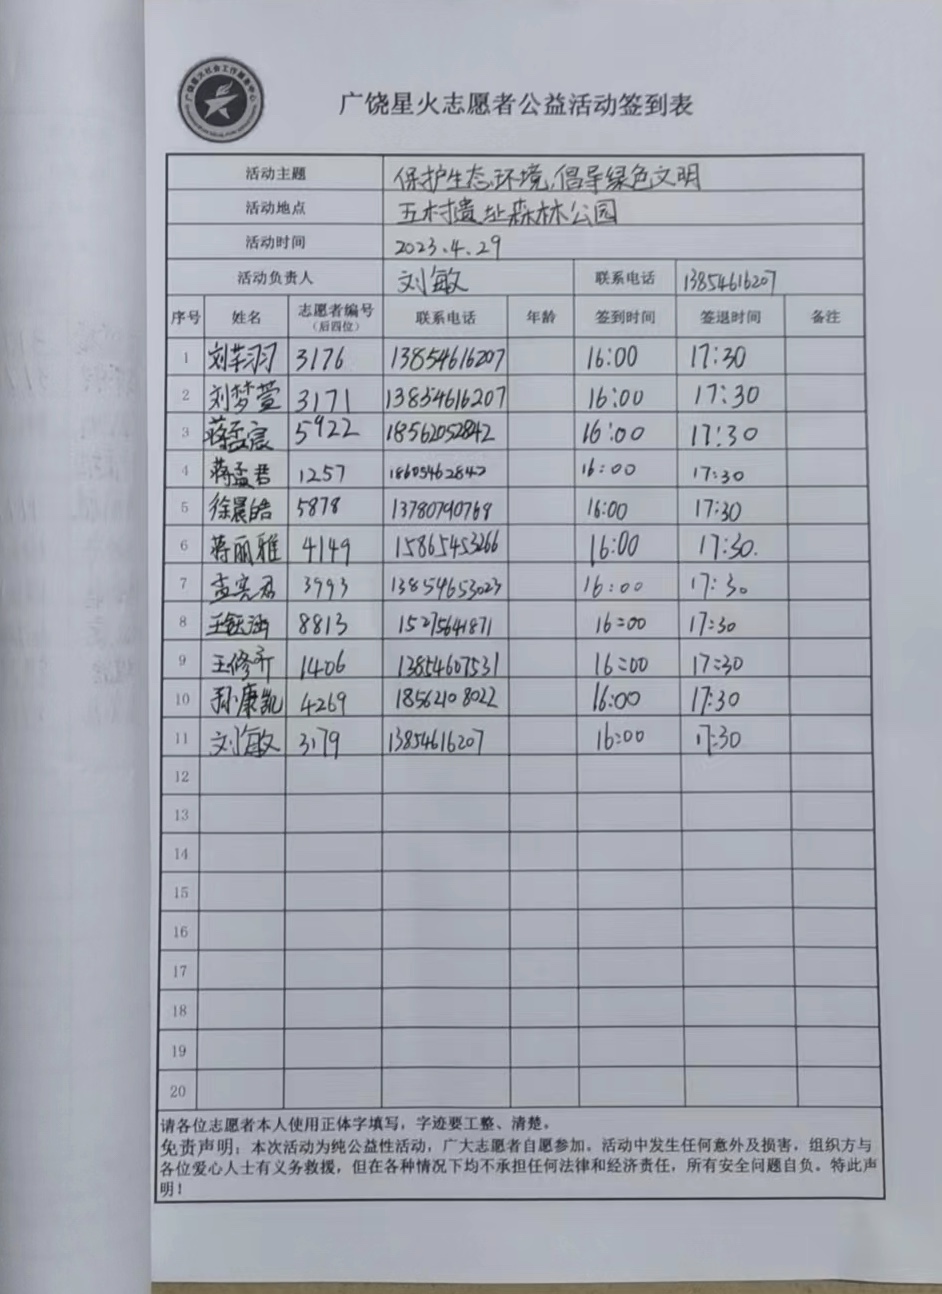 广饶星火志愿者公益活动签到表
活动主题 保护生态环境,倡导绿色文明
活动地点 五村遗址森林公园
活动时间 2023.4.29
活动负责人 刘敏 联系电话 13854616207
序号 姓名 志愿者编号(后四位) 联系电话 年龄 签到时间 签退时间 备注
1 刘芊羽 3176 13854616207 16:00 17:30
2 刘梦萱 3171 13854616207 16:00 17:30
3 蒋孟宸 5922 18562052842 16:00 17:30
4 蒋孟君 1257 18605462842 16:00 17:30
5 徐晨皓 5878 13780790768 16:00 17:30
6 蒋丽雅 4149 15865453266 16:00 17:30.
7 孟宪君 3993 13854653023 16:00 17:30
8 王钰涵 8813 15275641871 16:00 17:30
9 王修齐 1406 13854607531 16:00 17:30
10 孙康凯 4269 18562108022 16:00 17:30
11 刘敏 3179 13854616207 16:00 17:30
12
13
14
15
16
17
18
19
20
请各位志愿者本人使用正体字填写,字迹要工整、清楚。
免责声明:本次活动为纯公益性活动,广大志愿者自愿参加。活动中发生任何意外及损害,组织方与
各位爱心人士有义务救援,但在各种情况下均不承担任何法律和经济责任,所有安全问题自负。特此声
明!